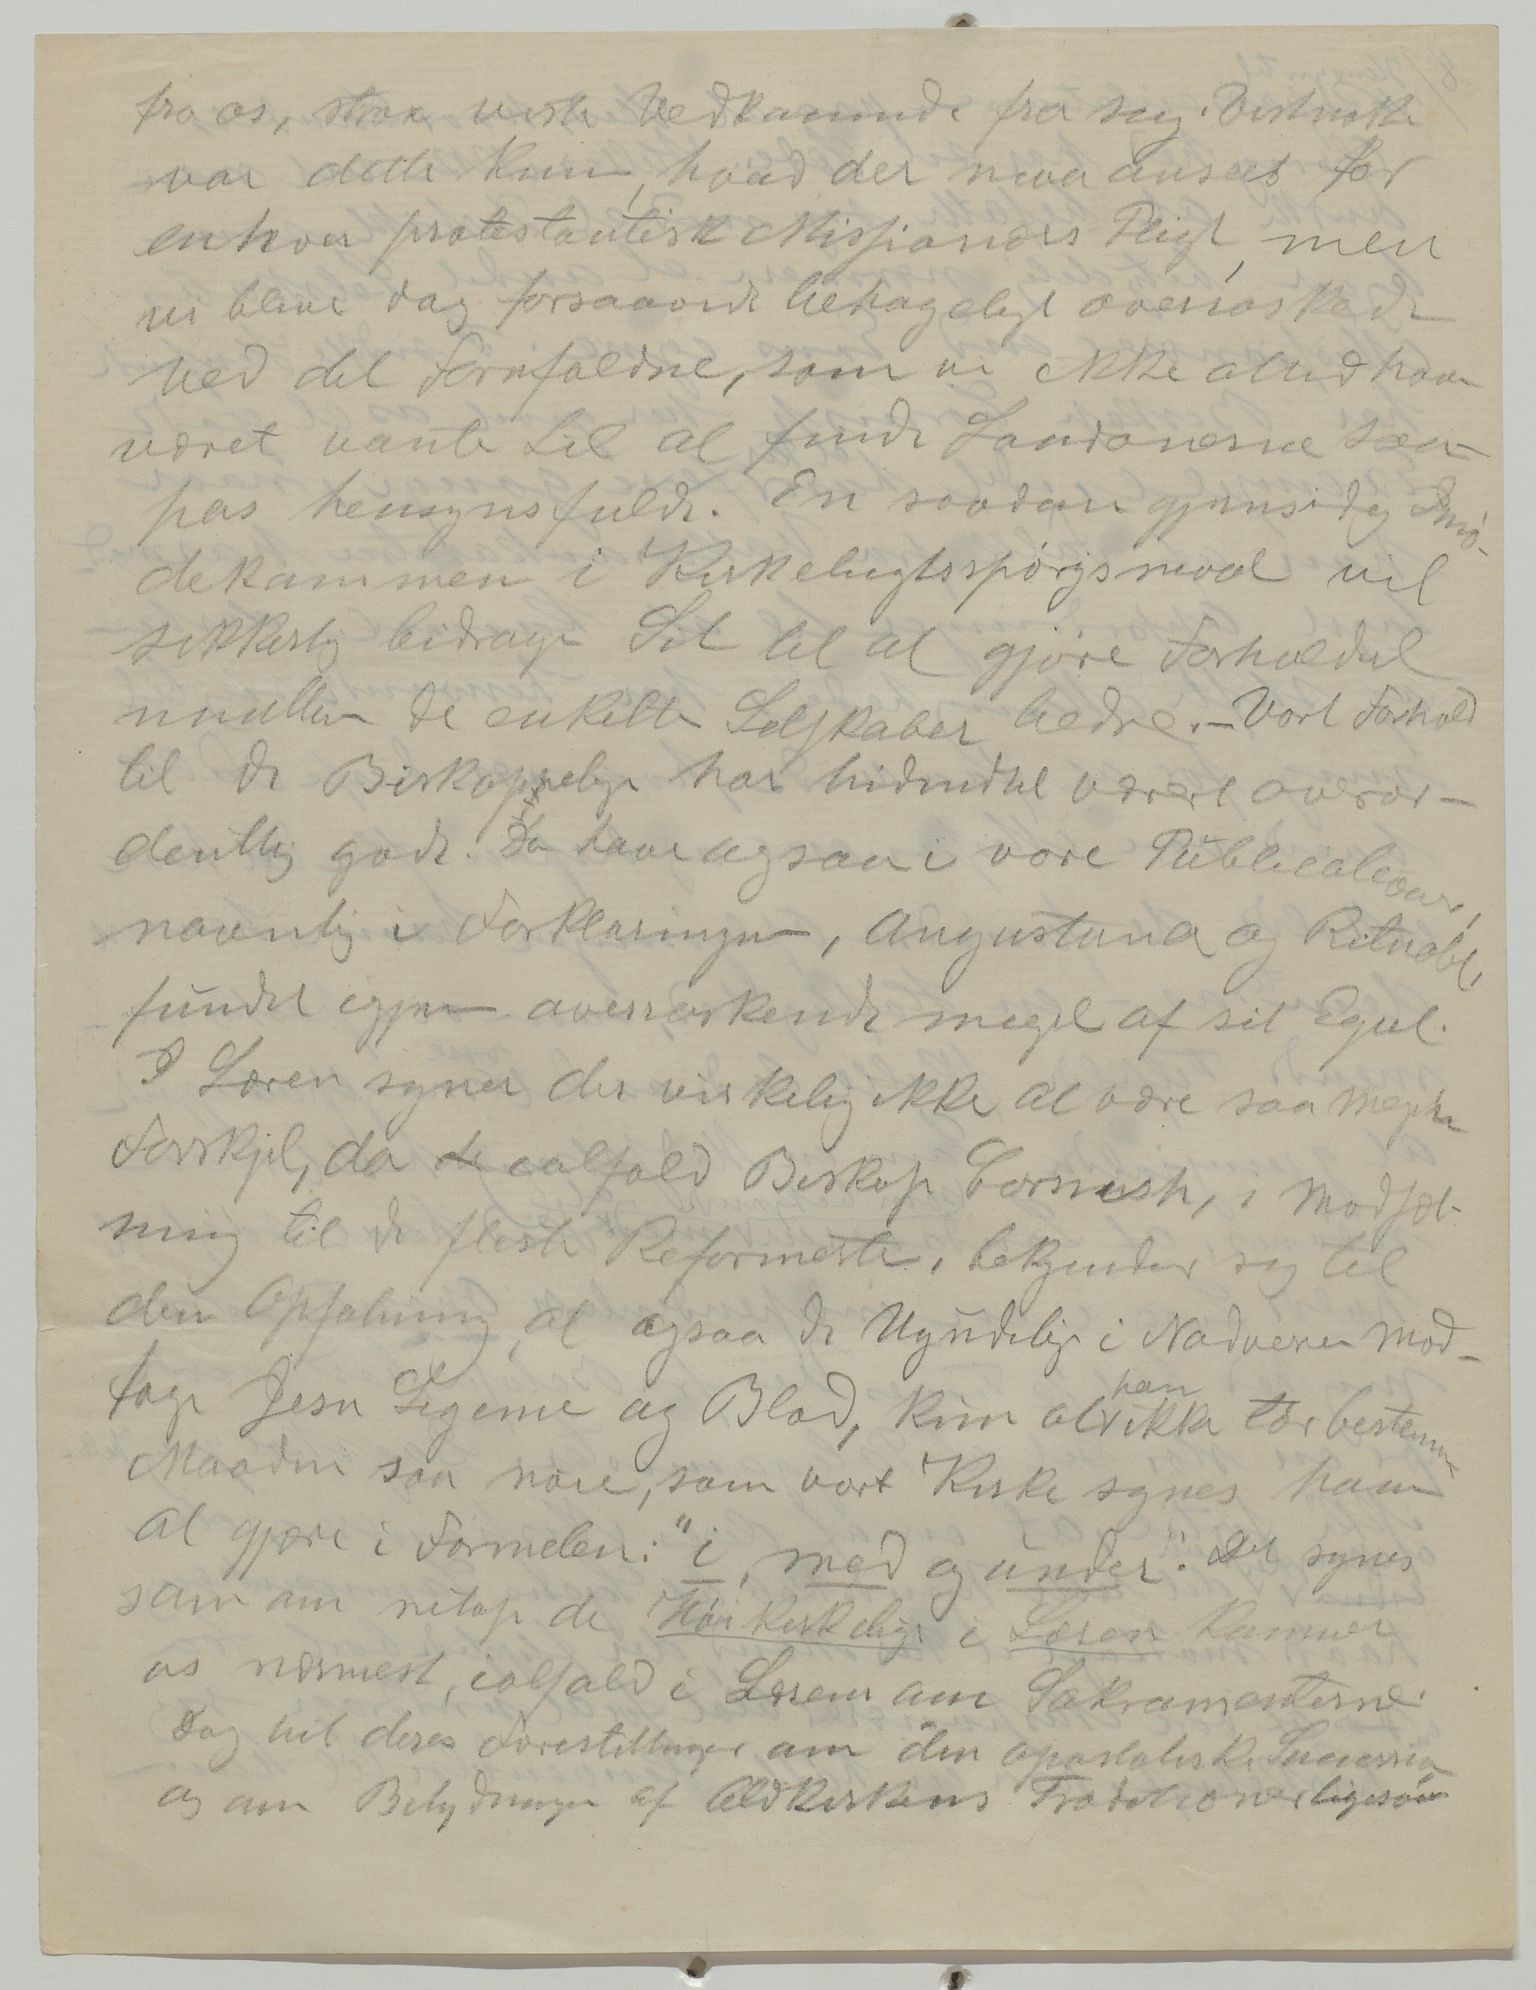 fra os, strax viste Vedkommende fra sig. Vistnokk
var dette kun, hvad der maa ansees for
enhver protestantisk Missionærs Pligt, men
vi bleve dog forsaavidt behageligt overraskede
ved det Forefaldne, som vi ikke altid have
været vante til at finde Londonerne saa-
pas hensynsfulde. En saadan gjensidig Imø-
dekommen i Kirketugtsspørgsmaal vil
sikkerlig bidrage Sit til at gjøre Forholdet
imellem de enkelte Selskaber bedre. – Vort Forhold
til de Biskoppelige har hidindtil været overor-
dentlig godt. De have ogsaa i vore Publicationer,
navnlig i Forklaringen, Augustana og Ritualet,
fundet igjen overraskende meget af sit Eget.
I Læren synes der virkelig ikke at være saa megen
Forskjel, da ialfald Biskop Cornish, i Modsæt-
ning til de fleste Reformerte, bekjender sig til
den Opfatning, at ogsaa de Ugudelige i Nadveren mod-
tage Jesu Legeme og Blod, kun at han ikke tør bestemme
Maaden saa nøie, som vort Kirke synes ham
at gjøre i Formelen: "i, med og under". Det synes
som om netop de Høikirkelige i Læren kommer
os nærmest, ialfald i Læren om Sakramenterne.
Dog vil deres Forestillinger om den apostoliske Succession
og om Betydningen af Oldkirkens Traditioner ligesaa